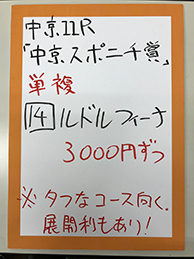 中京11R
「中京スポニチ賞」
単複
14 ルドルフィーナ
3000円ずつ
※タフなコース向く、
展開利もあり!